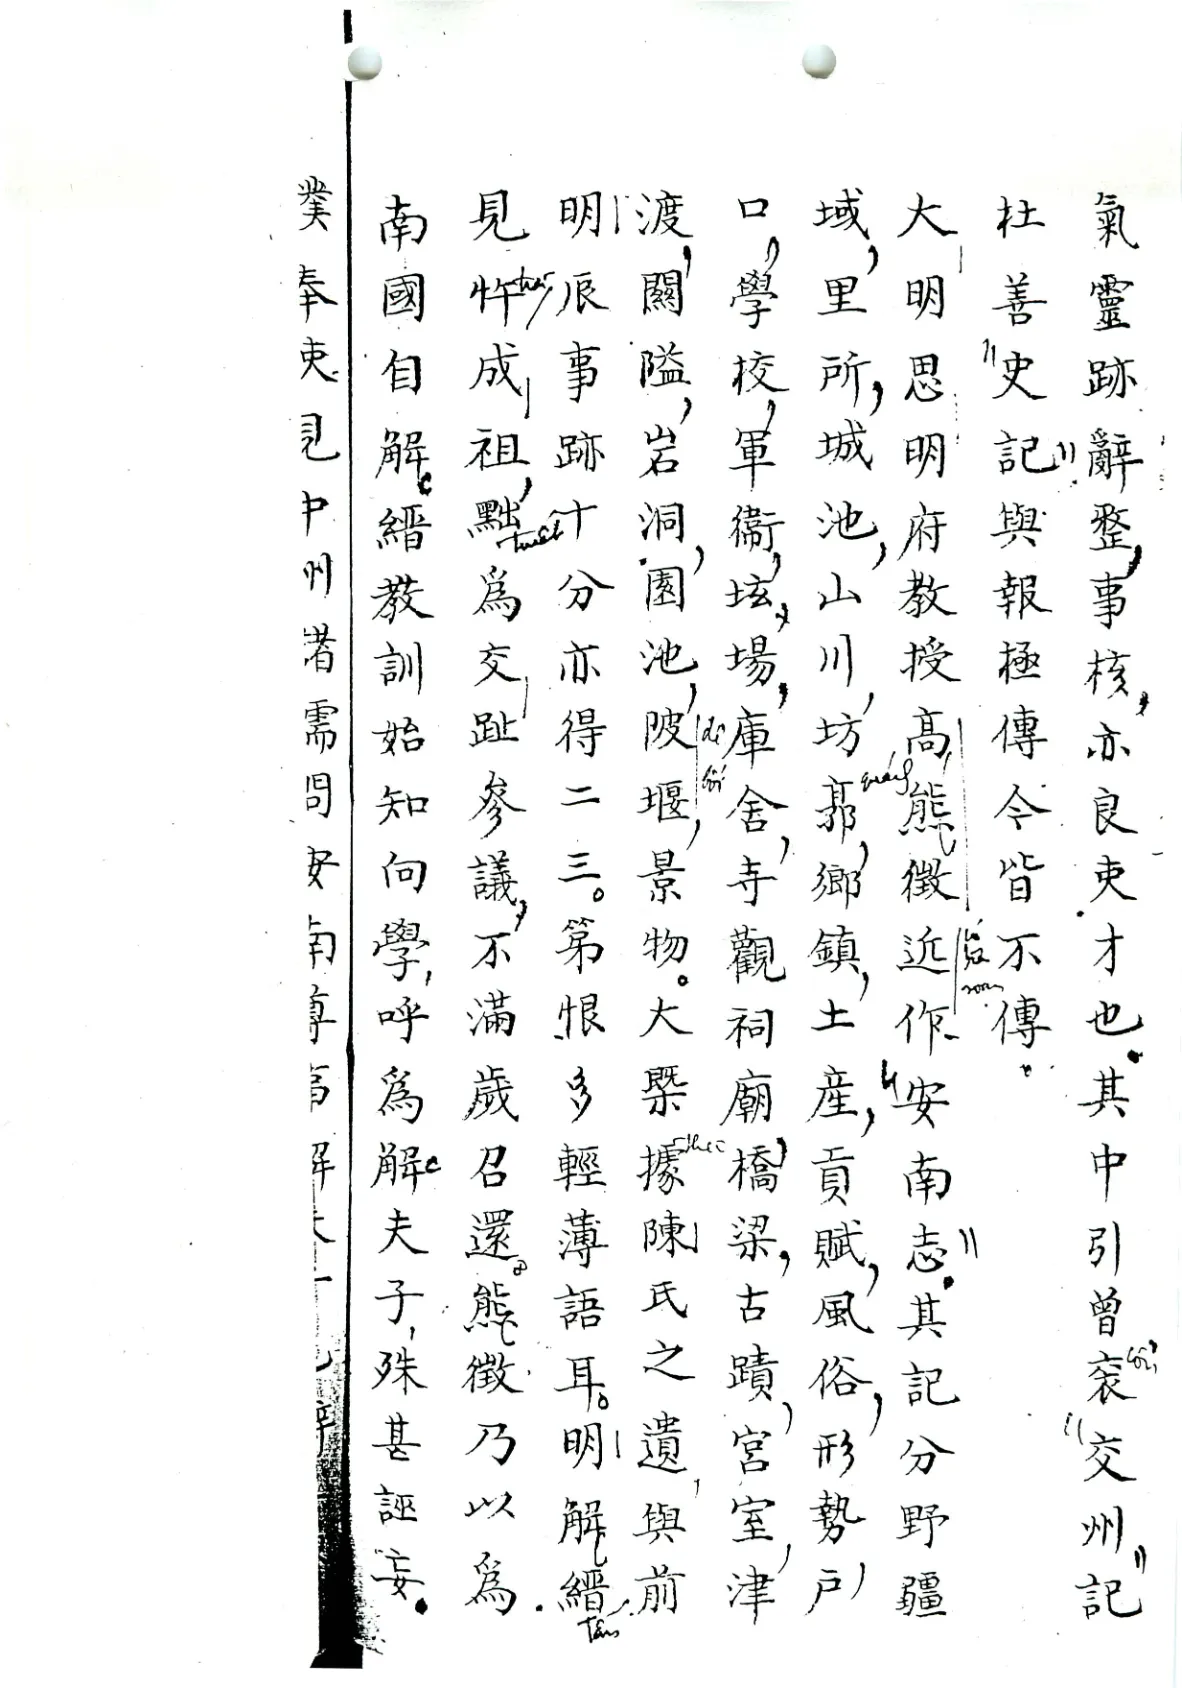 氣靈跡辭整事核亦良吏才也其中引曾衮交州記
杜善史記與報極傳今皆不傳
大明思明府教授高熊徵近作安南志其記分野疆
域里所城池山川坊郭鄉鎮土産貢賦風俗形勢户
口學校軍衞坛場庫舍寺觀祠廟橋梁古蹟宮室津
渡關隘岩洞園池陂堰景物。大槩據陳氏之遺與前
明辰事跡十分亦得二三。第恨多輕薄語耳。明解縉
見忤成祖黜為交趾參議不滿歲召還熊徵乃以為
南國自解縉教訓始知向學呼為解夫子殊甚誣妄
僕奉吏見中州者需問安南尊